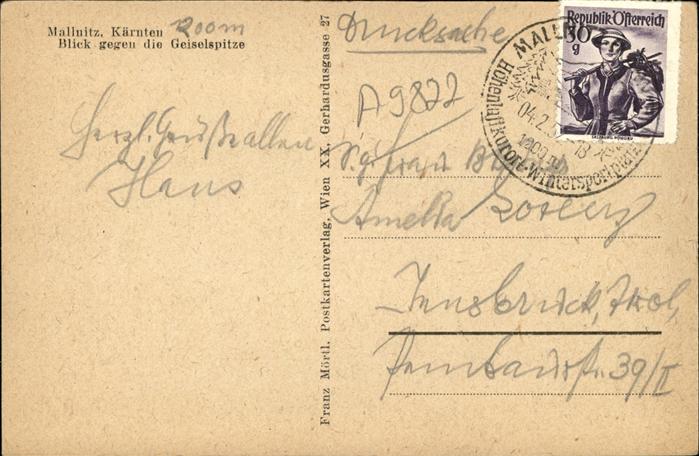 Mallnitz, Kärnten 1200m
Blick gegen die Geiselspitze
Herzl. Grüße allen
Hans
Franz Mörtl. Postkartenverlag, Wien XX, Gerhardusgasse 27
Drucksache
A9822
Amelia
Innsbruck, Tirol,
39/II
Republik Österreich
30
g
MALLN
04.2.
18
1200 m
Höhenluftkurort-Wintersportplatz